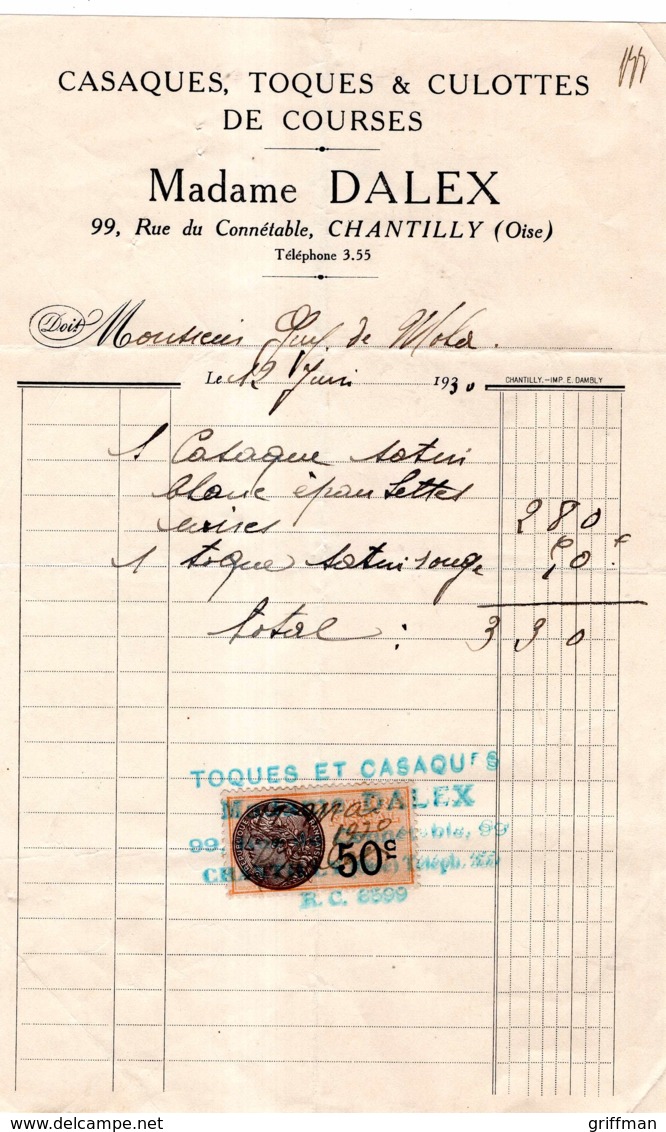 CASAQUES, TOQUES & CULOTTES
DE COURSES
Madame DALEX
99, Rue du Connétable, CHANTILLY (Oise)
Téléphone 3.55
Doit Monsieur de
Le 12 Juin 1930
CHANTILLY.—IMP. E. DAMBLY
1 Casaque satin
blanc épaulettes
cerises 280
1 toque satin rouge 50
total : 330
TOQUES ET CASAQUES
Madame DALEX
99, Rue du Connétable, 99
CHANTILLY Téléph. 355
R. C. 8599
50c
delcampe.net
griffman